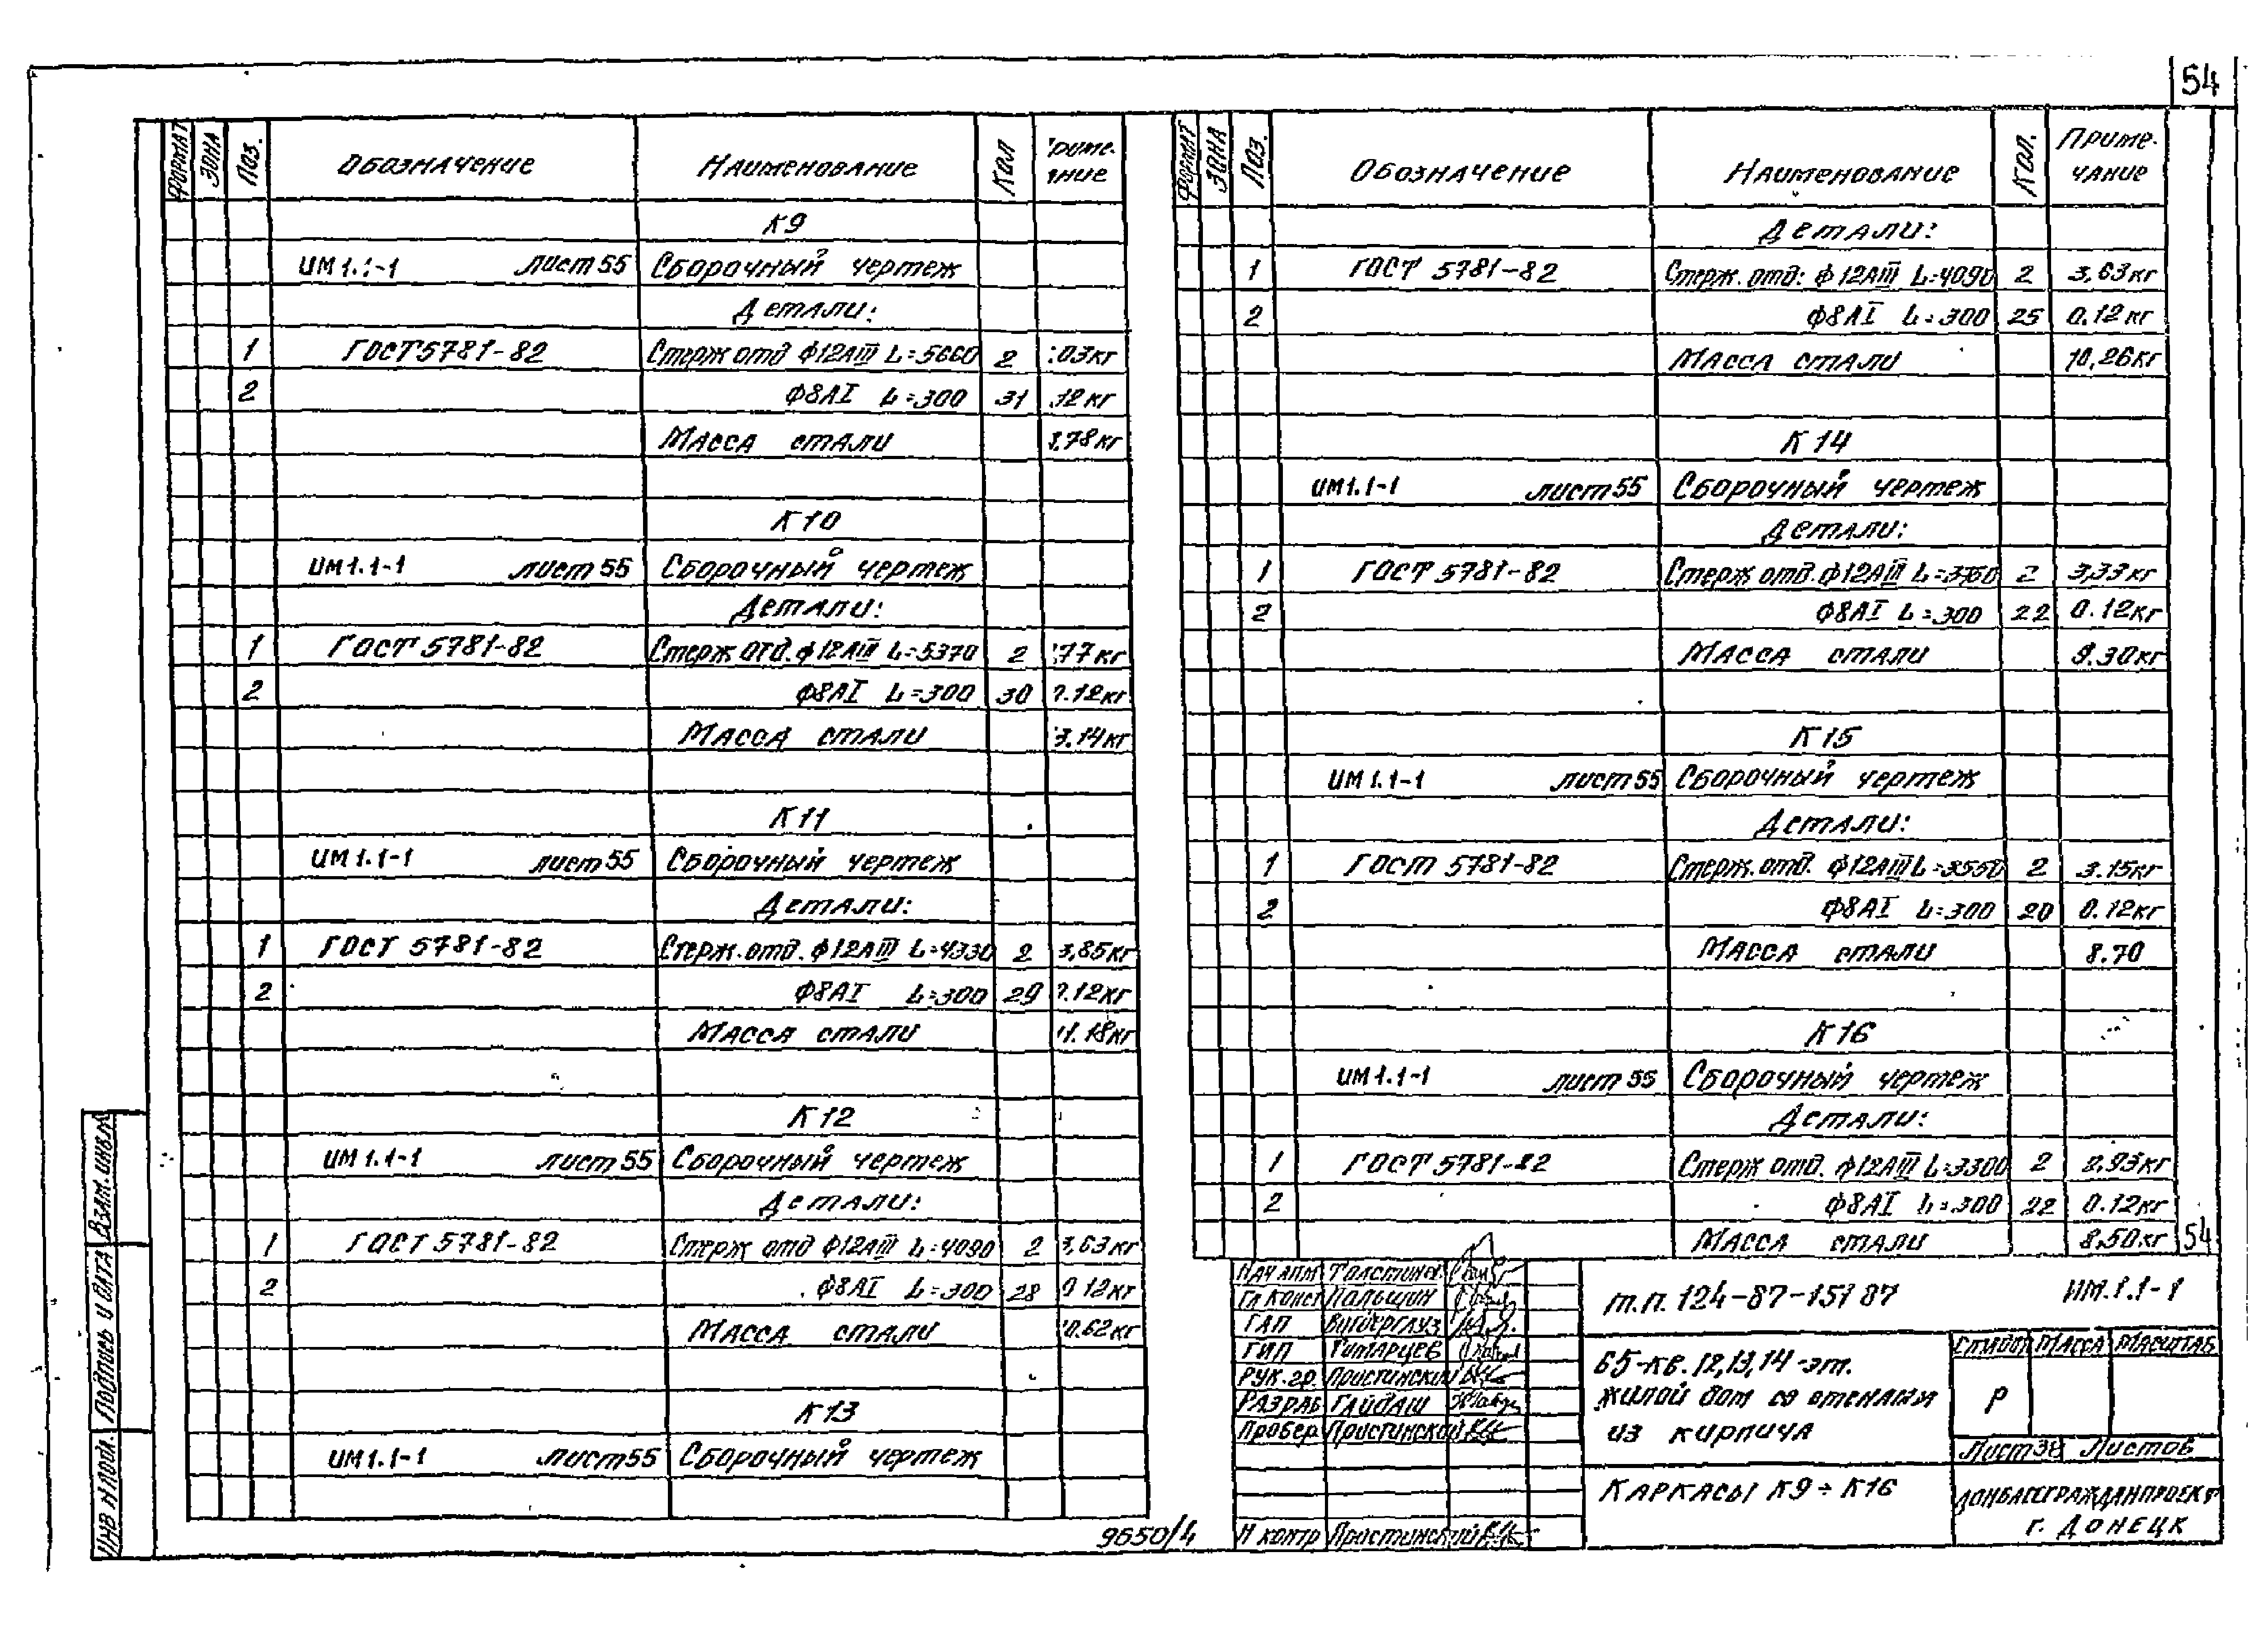 54
ФОРМАТ ЗОНА Поз. Обозначение Наименование Кол
К9
ИМ1.1-1 лист 55 Сборочный чертеж
Детали:
1 ГОСТ 5781-82 Стерж отд Ф12АIII L=5660 2 :03кг
2 Ф8АI L=300 31 .12кг
Масса стали 3,78кг
К10
ИМ1.1-1 лист 55 Сборочный чертеж
Детали:
1 ГОСТ 5781-82 Стерж отд. Ф12АIII L=5370 2 :77кг
2 Ф8АI L=300 30 0.12кг
Масса стали 3.14кг
К11
ИМ1.1-1 лист 55 Сборочный чертеж
Детали:
1 ГОСТ 5781-82 Стерж.отд. Ф12АIII L=4330 2 3,85кг
2 Ф8АI L=300 29 0.12кг
Масса стали 11.18кг
К12
ИМ1.1-1 лист 55 Сборочный чертеж
Детали:
1 ГОСТ 5781-82 Стерж отд Ф12АIII L=4090 2 3,63кг
2 Ф8АI L=300 28 0 12кг
Масса стали 10.62кг
К13
ИМ1.1-1 лист 55 Сборочный чертеж
ФОРМАТ ЗОНА Поз. Обозначение Наименование Кол. Примечание
Детали:
1 ГОСТ 5781-82 Стерж. отд: Ф12АIII L=4090 2 3,63кг
2 Ф8АI L=300 25 0.12кг
Масса стали 10,26кг
К14
ИМ1.1-1 лист 55 Сборочный чертеж
Детали:
1 ГОСТ 5781-82 Стерж отд. Ф12АIII L=3760 2 3,33кг
2 Ф8АI L=300 22 0.12кг
Масса стали 9.30кг
К15
ИМ1.1-1 лист 55 Сборочный чертеж
Детали:
1 ГОСТ 5781-82 Стерж.отд. Ф12АIII L=3550 2 3.15кг
2 Ф8АI L=300 20 0.12кг
Масса стали 8.70
К16
ИМ1.1-1 лист 55 Сборочный чертеж
Детали:
1 ГОСТ 5781-82 Стерж отд. Ф12АIII L=3300 2 2,93кг
2 Ф8АI L=300 22 0.12кг
Масса стали 8,50кг
54
Нач АПМ Толстина
Гл Конст Пальщин
ГАП Вигдергауз
ГИП Титарцев
Рук.гр. Пристинский
Разраб Гайдаш
Провер Пристинский
Н контр Пристинский
т.п. 124-87-151 87 ИМ.1.1-1
65-кв. 12,13,14-эт.
жилой дом со стенами
из кирпича
Стадия Масса Масштаб
Р
Лист 38 Листов
Каркасы К9÷К16
ДОНБАССГРАЖДАНПРОЕКТ
г. Донецк
Взам. инв.N
Подпись и дата
Инв N подл.
9650/4